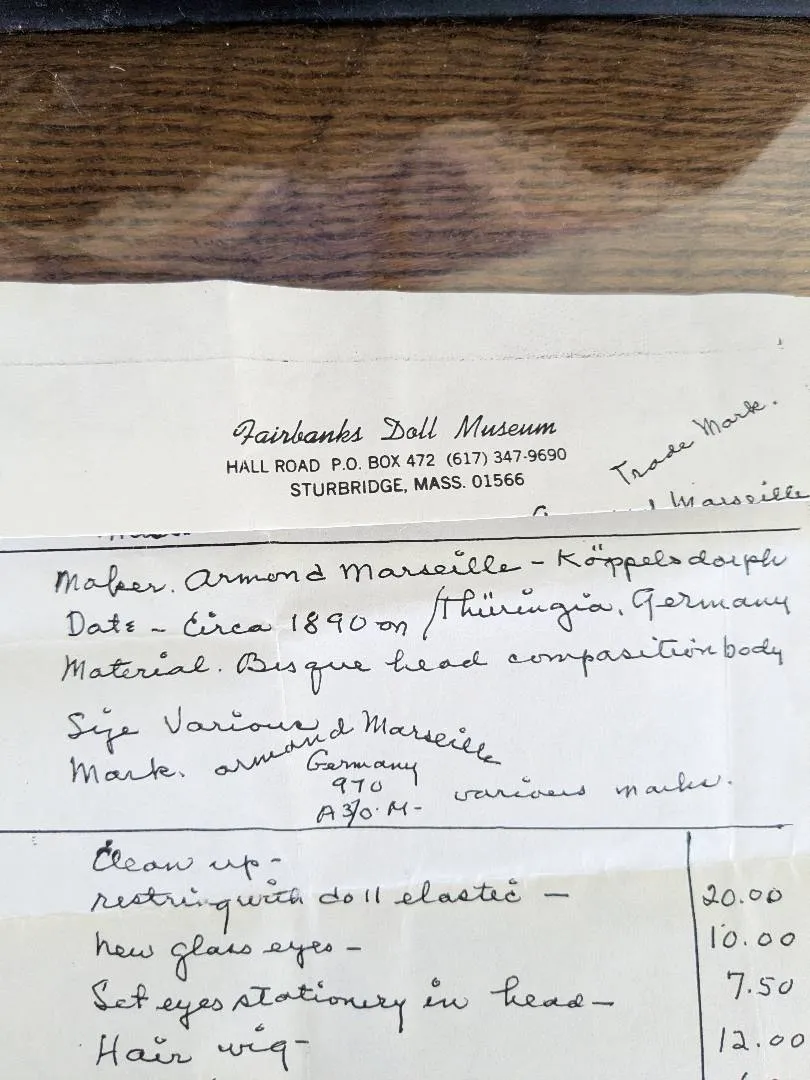 Fairbanks Doll Museum
HALL ROAD P.O. BOX 472 (617) 347-9690
STURBRIDGE, MASS. 01566
Trade Mark.
Marseille
Maker. Armond Marseille - Köppelsdorph
Date - Circa 1890 on /Thüringia, Germany
Material. Bisque head composition body
Size Various
Mark. armand Marseille
Germany
970
A 3/0. M-
various marks.
Clean up -
restring with doll elastic - 20.00
new glass eyes - 10.00
Set eyes stationery in head - 7.50
Hair wig - 12.00